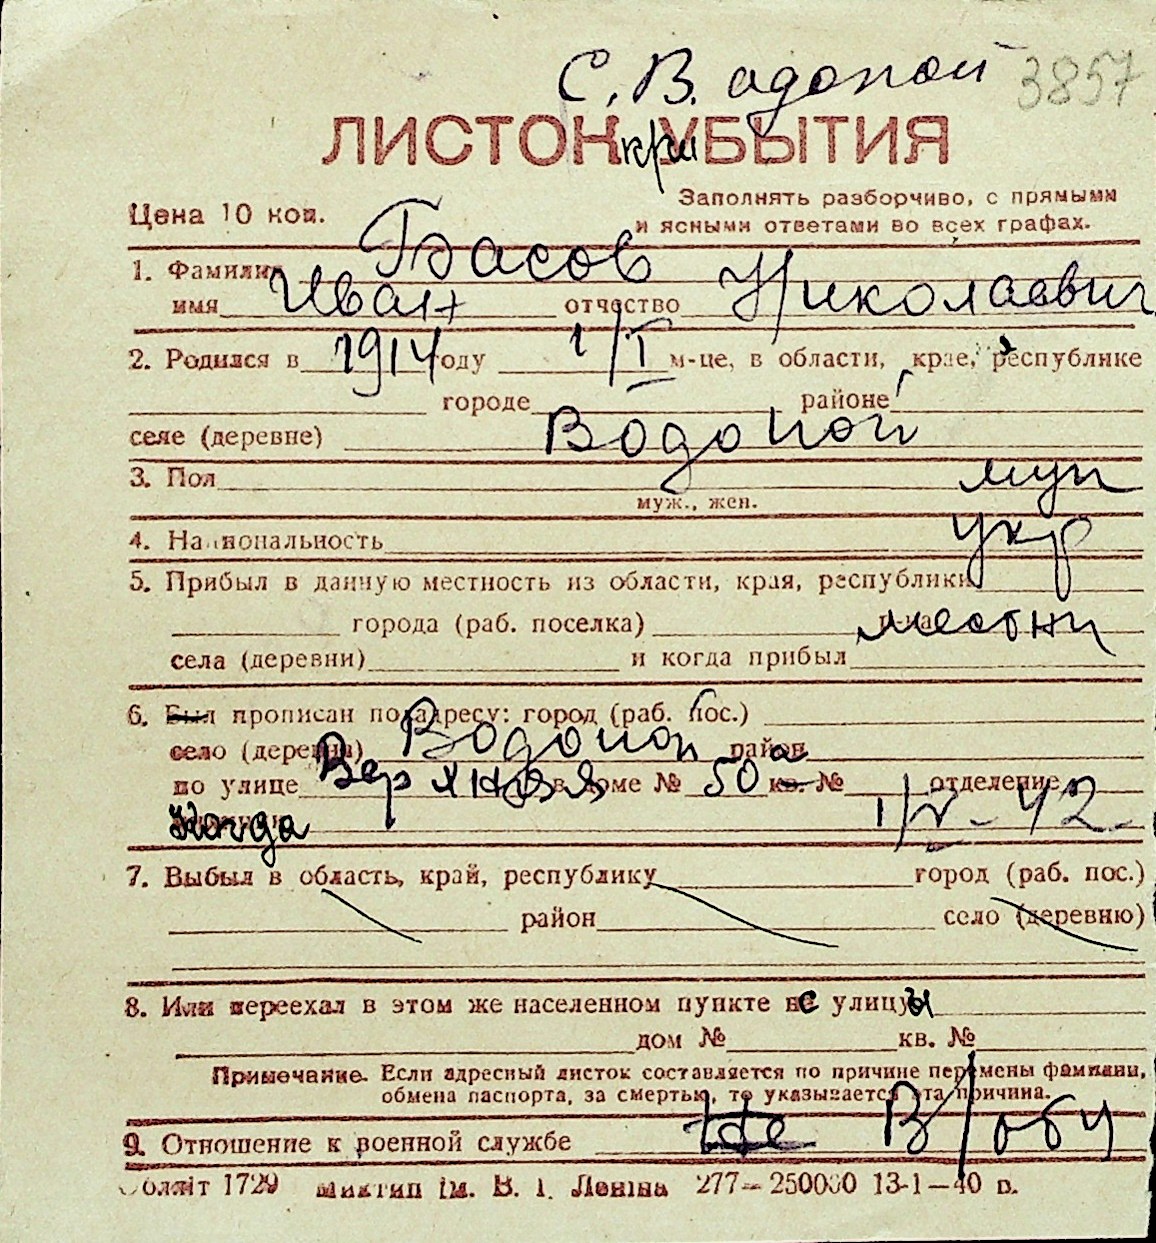 С. Водопой 3857
ЛИСТОК при УБЫТИЯ
Цена 10 коп. Заполнять разборчиво, с прямыми
и ясными ответами во всех графах.
1. Фамилия Басов
имя Иван отчество Николаевич
2. Родился в 1914 году 1/I м-це, в области, крае, республике
городе районе
селе (деревне) Водопой
3. Пол муж
муж., жен.
4. Национальность укр
5. Прибыл в данную местность из области, края, республики
города (раб. поселка) местни
села (деревни) и когда прибыл
6. Был прописан по адресу: город (раб. пос.)
село (деревня) Водопой район
по улице Верхняя в доме № 50а кв. № отделение
Когда 1/V-42
7. Выбыл в область, край, республику город (раб. пос.)
район село (деревню)
8. Или переехал в этом же населенном пункте с улицы
дом № кв. №
Примечание. Если адресный листок составляется по причине перемены фамилии,
обмена паспорта, за смертью, то указывается эта причина.
9. Отношение к военной службе В/обу
Обллiт 1729 Миктип iм. В. I. Ленiна 277—250000 13-1—40 р.